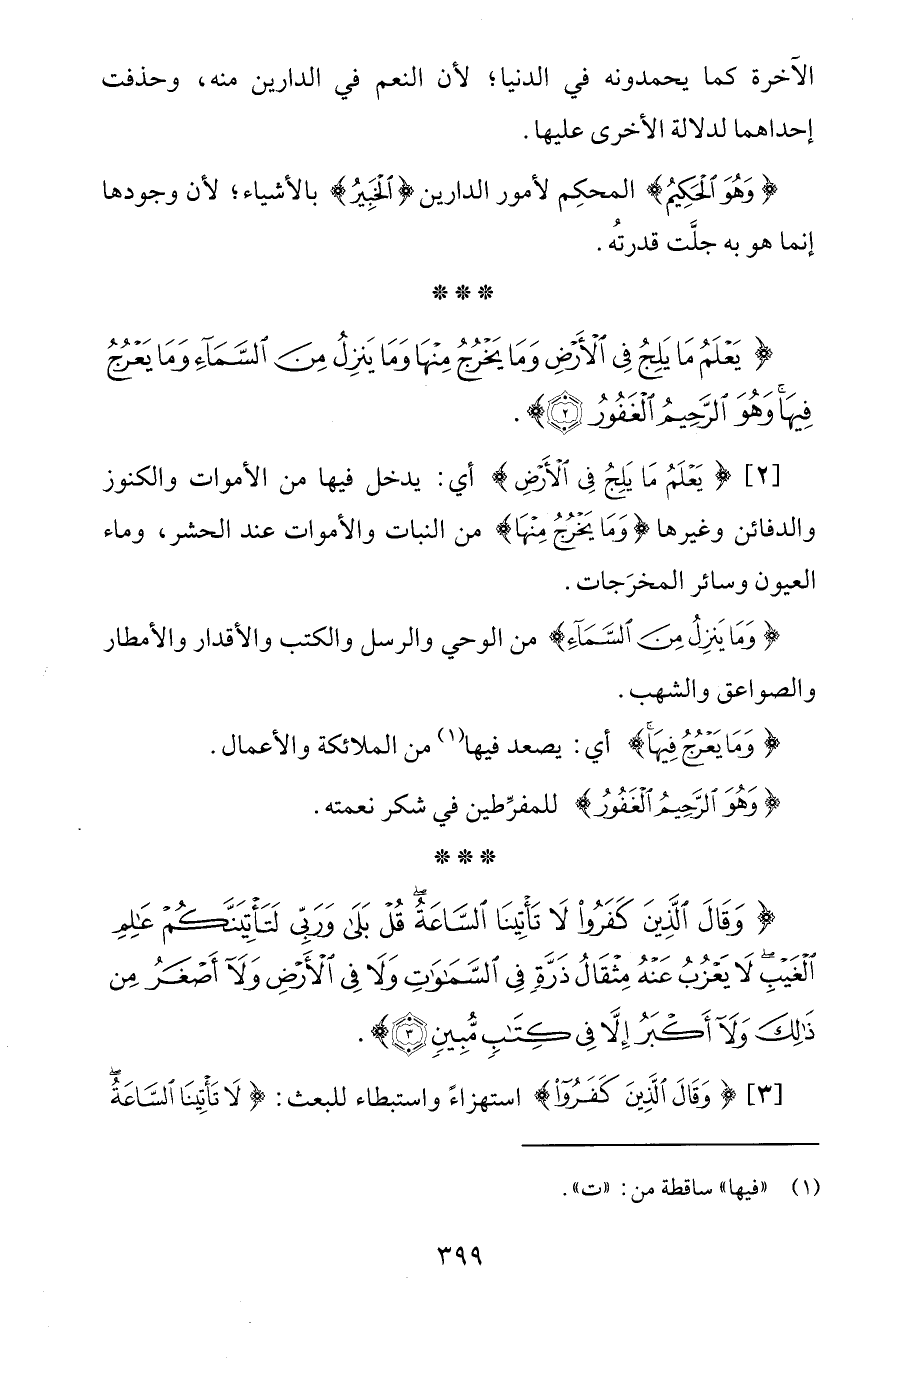 الآخرة كما يحمدونه في الدنيا؛ لأن النعم في الدارين منه، وحذفت
إحداهما لدلالة الأخرى عليها.
﴿وَهُوَ ٱلْحَكِيمُ﴾ المحكِم لأمور الدارين ﴿ٱلْخَبِيرُ﴾ بالأشياء؛ لأن وجودها
إنما هو به جلَّت قدرتُه.
* * *
﴿يَعْلَمُ مَا يَلِجُ فِى ٱلْأَرْضِ وَمَا يَخْرُجُ مِنْهَا وَمَا يَنزِلُ مِنَ ٱلسَّمَآءِ وَمَا يَعْرُجُ
فِيهَا ۚ وَهُوَ ٱلرَّحِيمُ ٱلْغَفُورُ ٢﴾.
[٢] ﴿يَعْلَمُ مَا يَلِجُ فِى ٱلْأَرْضِ﴾ أي: يدخل فيها من الأموات والكنوز
والدفائن وغيرها ﴿وَمَا يَخْرُجُ مِنْهَا﴾ من النبات والأموات عند الحشر، وماء
العيون وسائر المخرَجات.
﴿وَمَا يَنزِلُ مِنَ ٱلسَّمَآءِ﴾ من الوحي والرسل والكتب والأقدار والأمطار
والصواعق والشهب.
﴿وَمَا يَعْرُجُ فِيهَا ۚ﴾ أي: يصعد فيها(١) من الملائكة والأعمال.
﴿وَهُوَ ٱلرَّحِيمُ ٱلْغَفُورُ﴾ للمفرِّطين في شكر نعمته.
* * *
﴿وَقَالَ ٱلَّذِينَ كَفَرُوا۟ لَا تَأْتِينَا ٱلسَّاعَةُ ۖ قُلْ بَلَىٰ وَرَبِّى لَتَأْتِيَنَّكُمْ عَٰلِمِ
ٱلْغَيْبِ ۖ لَا يَعْزُبُ عَنْهُ مِثْقَالُ ذَرَّةٍ فِى ٱلسَّمَٰوَٰتِ وَلَا فِى ٱلْأَرْضِ وَلَآ أَصْغَرُ مِن
ذَٰلِكَ وَلَآ أَكْبَرُ إِلَّا فِى كِتَٰبٍ مُّبِينٍ ٣﴾.
[٣] ﴿وَقَالَ ٱلَّذِينَ كَفَرُوا۟﴾ استهزاءً واستبطاء للبعث: ﴿لَا تَأْتِينَا ٱلسَّاعَةُ ۖ
(١) «فيها» ساقطة من: «ت».
٣٩٩